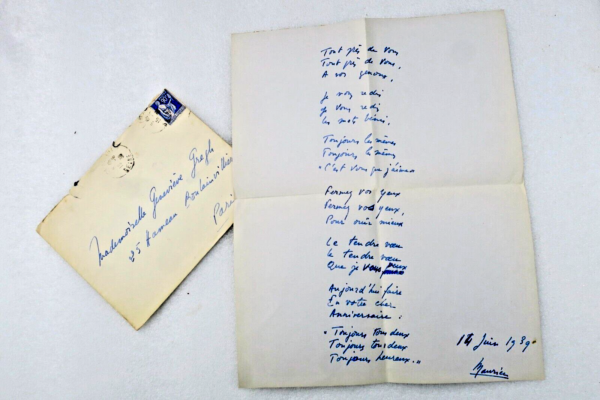 Mademoiselle Geneviève
25 Hameau Boulainvilliers
Paris
Tout près de vous
Tout près de vous,
A vos genoux,
Je vous redis
Je vous redis
les mots bénis,
Toujours les mêmes
Toujours les mêmes
"C'est vous que j'aime
Fermez vos yeux
Fermez vos yeux,
Pour ouïr mieux
Le tendre vœu
le tendre vœu
Que je veux
Aujourd'hui faire
En votre cher
Anniversaire,
"Toujours tous deux
Toujours tous deux
Toujours heureux."
14 Juin 1939
Maurice